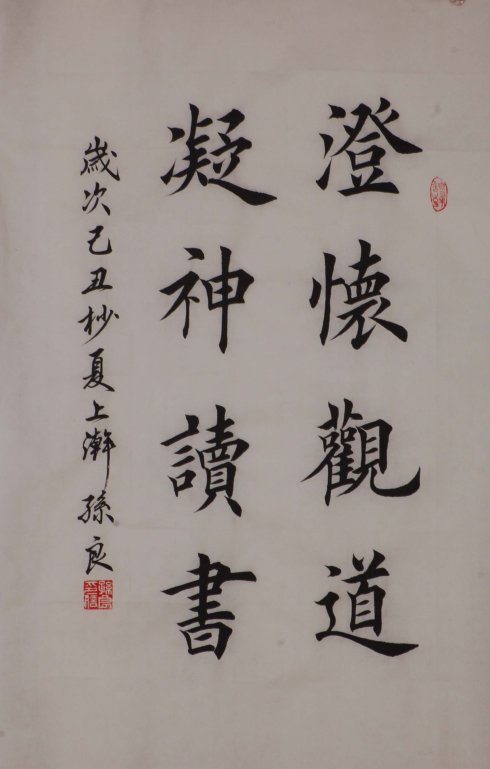 澄懷觀道
凝神讀書
歲次己丑杪夏上澣孫良